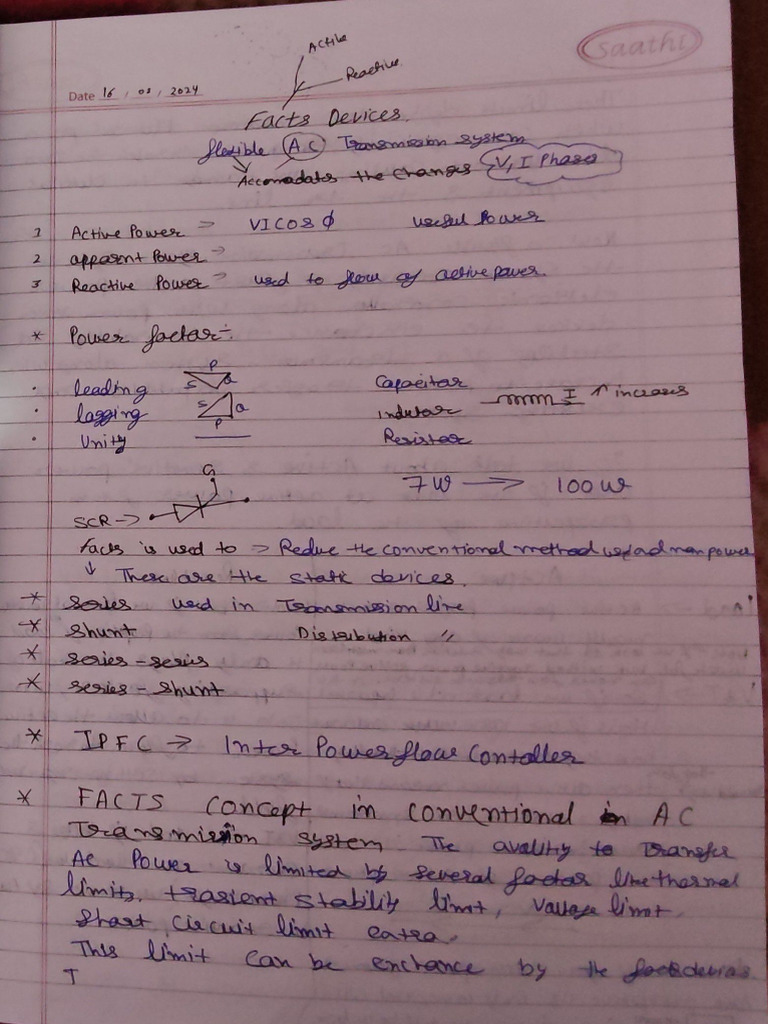 Active
saathi
Reactive
Date 16 / 08 / 2024
Facts Devices.
flexible AC Transmission system
Accomadates the changes V, I Phases
1 Active Power => VICOS ϕ useful Power
2 apparent Power =>
3 Reactive Power => used to flow of active power.
* Power factor:-
P
· leading S Q Capacitor
· lagging S Q P Indutor I ↑ increases
· Unity Resistor
G
7W → 100W
SCR →
facts is used to => Reduce the conventional method and man power
↓ These are the static devices.
* series used in Transmission line
* shunt Distribution "
* series - seris
* series - shunt
* IPFC → Inter Power flow Contoller
* FACTS concept in conventional in AC
Transmission system The avality to Transfer
Ac Power is limited by several factor like thermal
limits, trasient stability limit, valtage limit
short circuit limit eatra.
This limit can be enchance by the facts devias
T